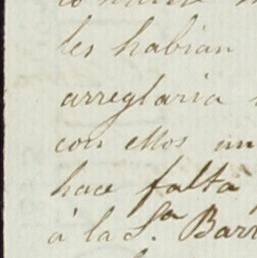 les habian
arreglaria
con ellos un
hace falta
á la S.ra Barr